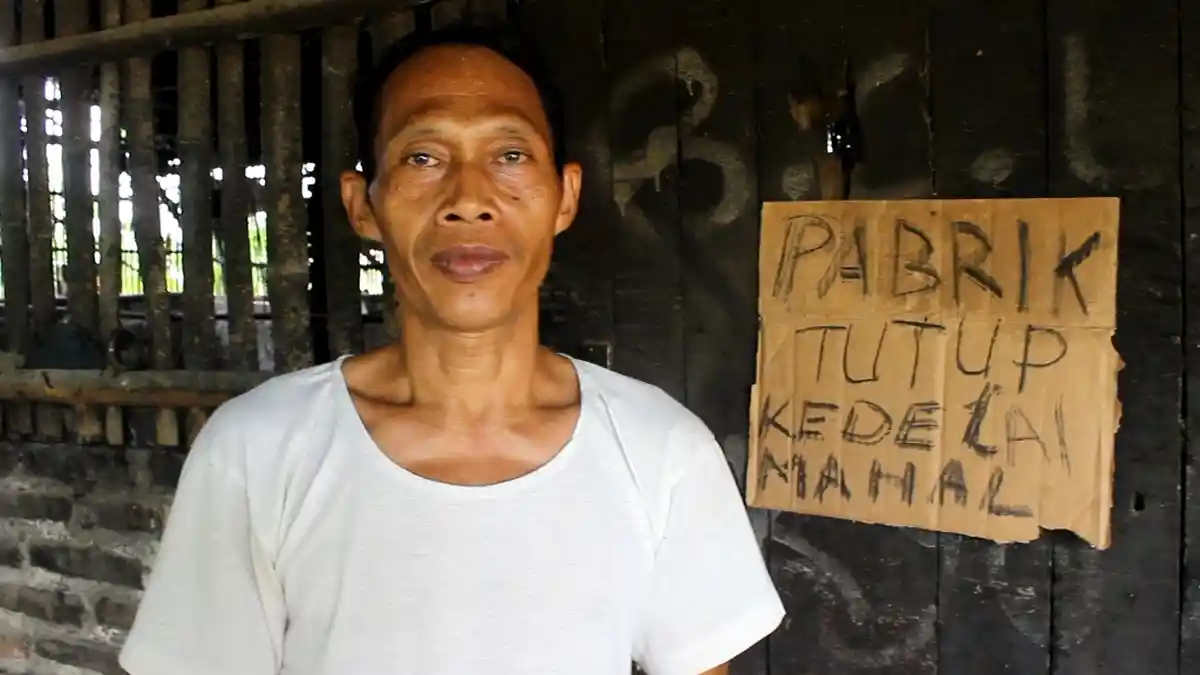 PABRIK
TUTUP
KEDELAI
MAHAL